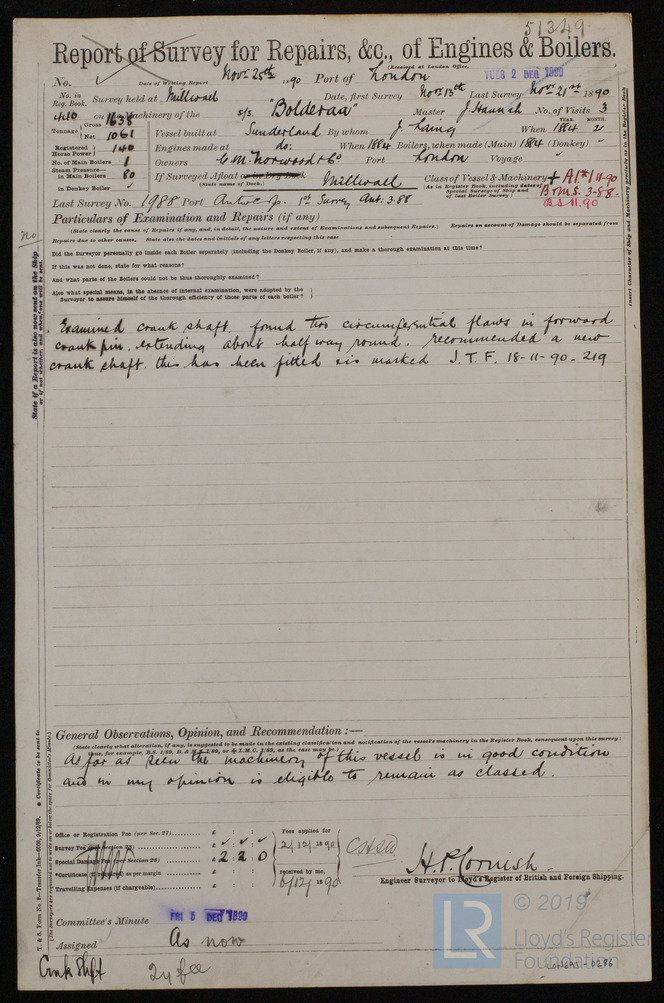 51349
Report of Survey for Repairs, &c., of Engines & Boilers.
(Received at London Office,
No. Date of Writing Report Novr 25th 1890 Port of London TUES 2 DEC 1890
No. in Reg. Book. Survey held at Millwall Date, first Survey Novr 13th Last Survey Novr 21st 1890
440 on the Machinery of the s/s. "Bolderaa" Master J. Hannah No. of Visits 3
Tonnage Gross 1638 Net 1061 Vessel built at Sunderland By whom J. Laing When 1884 YEAR. MONTH. 2
Registered Horse Power 140 Engines made at do: When 1884 Boilers, when made (Main) 1884 (Donkey)
No. of Main Boilers 1 Owners C. M. Norwood & Co Port London Voyage
Steam Pressure— in Main Boilers 80 If Surveyed Afloat or in Dry Dock Millwall Class of Vessel & Machinery + A1* 11-90
in Donkey Boiler (State name of Dock.) (As in Register Book, including dates of Special Surveys of Ship and of last Boiler Survey.) B & M.S. 3-88-
BS 11.90
Last Survey No. 1988 Port Antwep. 1st Survey Ant. 3.88
Particulars of Examination and Repairs (if any)
(State clearly the cause of Repairs if any, and, in detail, the nature and extent of Examinations and subsequent Repairs.) Repairs on account of Damage should be separated from
Repairs due to other causes. State also the dates and initials of any letters respecting this case
Did the Surveyor personally go inside each Boiler separately (including the Donkey Boiler, if any), and make a thorough examination at this time?
If this was not done, state for what reasons?
And what parts of the Boilers could not be thus thoroughly examined?
Also what special means, in the absence of internal examination, were adopted by the Surveyor to assure himself of the thorough efficiency of those parts of each boiler?
Examined crank shaft. found two circumferential flaws in forward
crank pin. extending about half way round. recommended a new
crank shaft. this has been fitted & is marked J. T. F. 18-11-90-219
no
State if a Report is also now sent on the Ship
or if not whether, and when, one will be sent.
Insert Character of Ship and Machinery precisely as in the Register Book
General Observations, Opinion, and Recommendation :—
(State clearly what alteration, if any, is suggested to be made in the existing classification and notification of the vessel's machinery in the Register Book, consequent upon this survey;
thus, for example, B.S. 1/89, B. & M.S. 1/89, or + L.M.C. 1/89, as the case may be.)
As far as seen the machinery of this vessel is in good condition
and in my opinion is eligible to remain as classed.
Office or Registration Fee (per Sec. 27) £ : : Fees applied for
Survey Fee (per Section 28) £ : : 2/12/1890
Special Damage Fee (per Section 28) £ 2 : 2 : 0
*Certificate (if required) as per margin £ : : received by me,
Travelling Expenses (if chargeable) £ : : 6/12/1890
H. P. Cornish.
Engineer Surveyor to Lloyd's Register of British and Foreign Shipping.
Committee's Minute FRI 5 DEC 1890
Assigned As now
Crnk Shft 2y fee
T. & S. Form No. 8—Transfer Ink—6000, 5/12/89.
* Certificate to be sent to
(The Surveyors are requested not to write on or below the space for Committee's Minute.)
LR © 2019
Lloyd's Register
Foundation
LONGAT - 0286